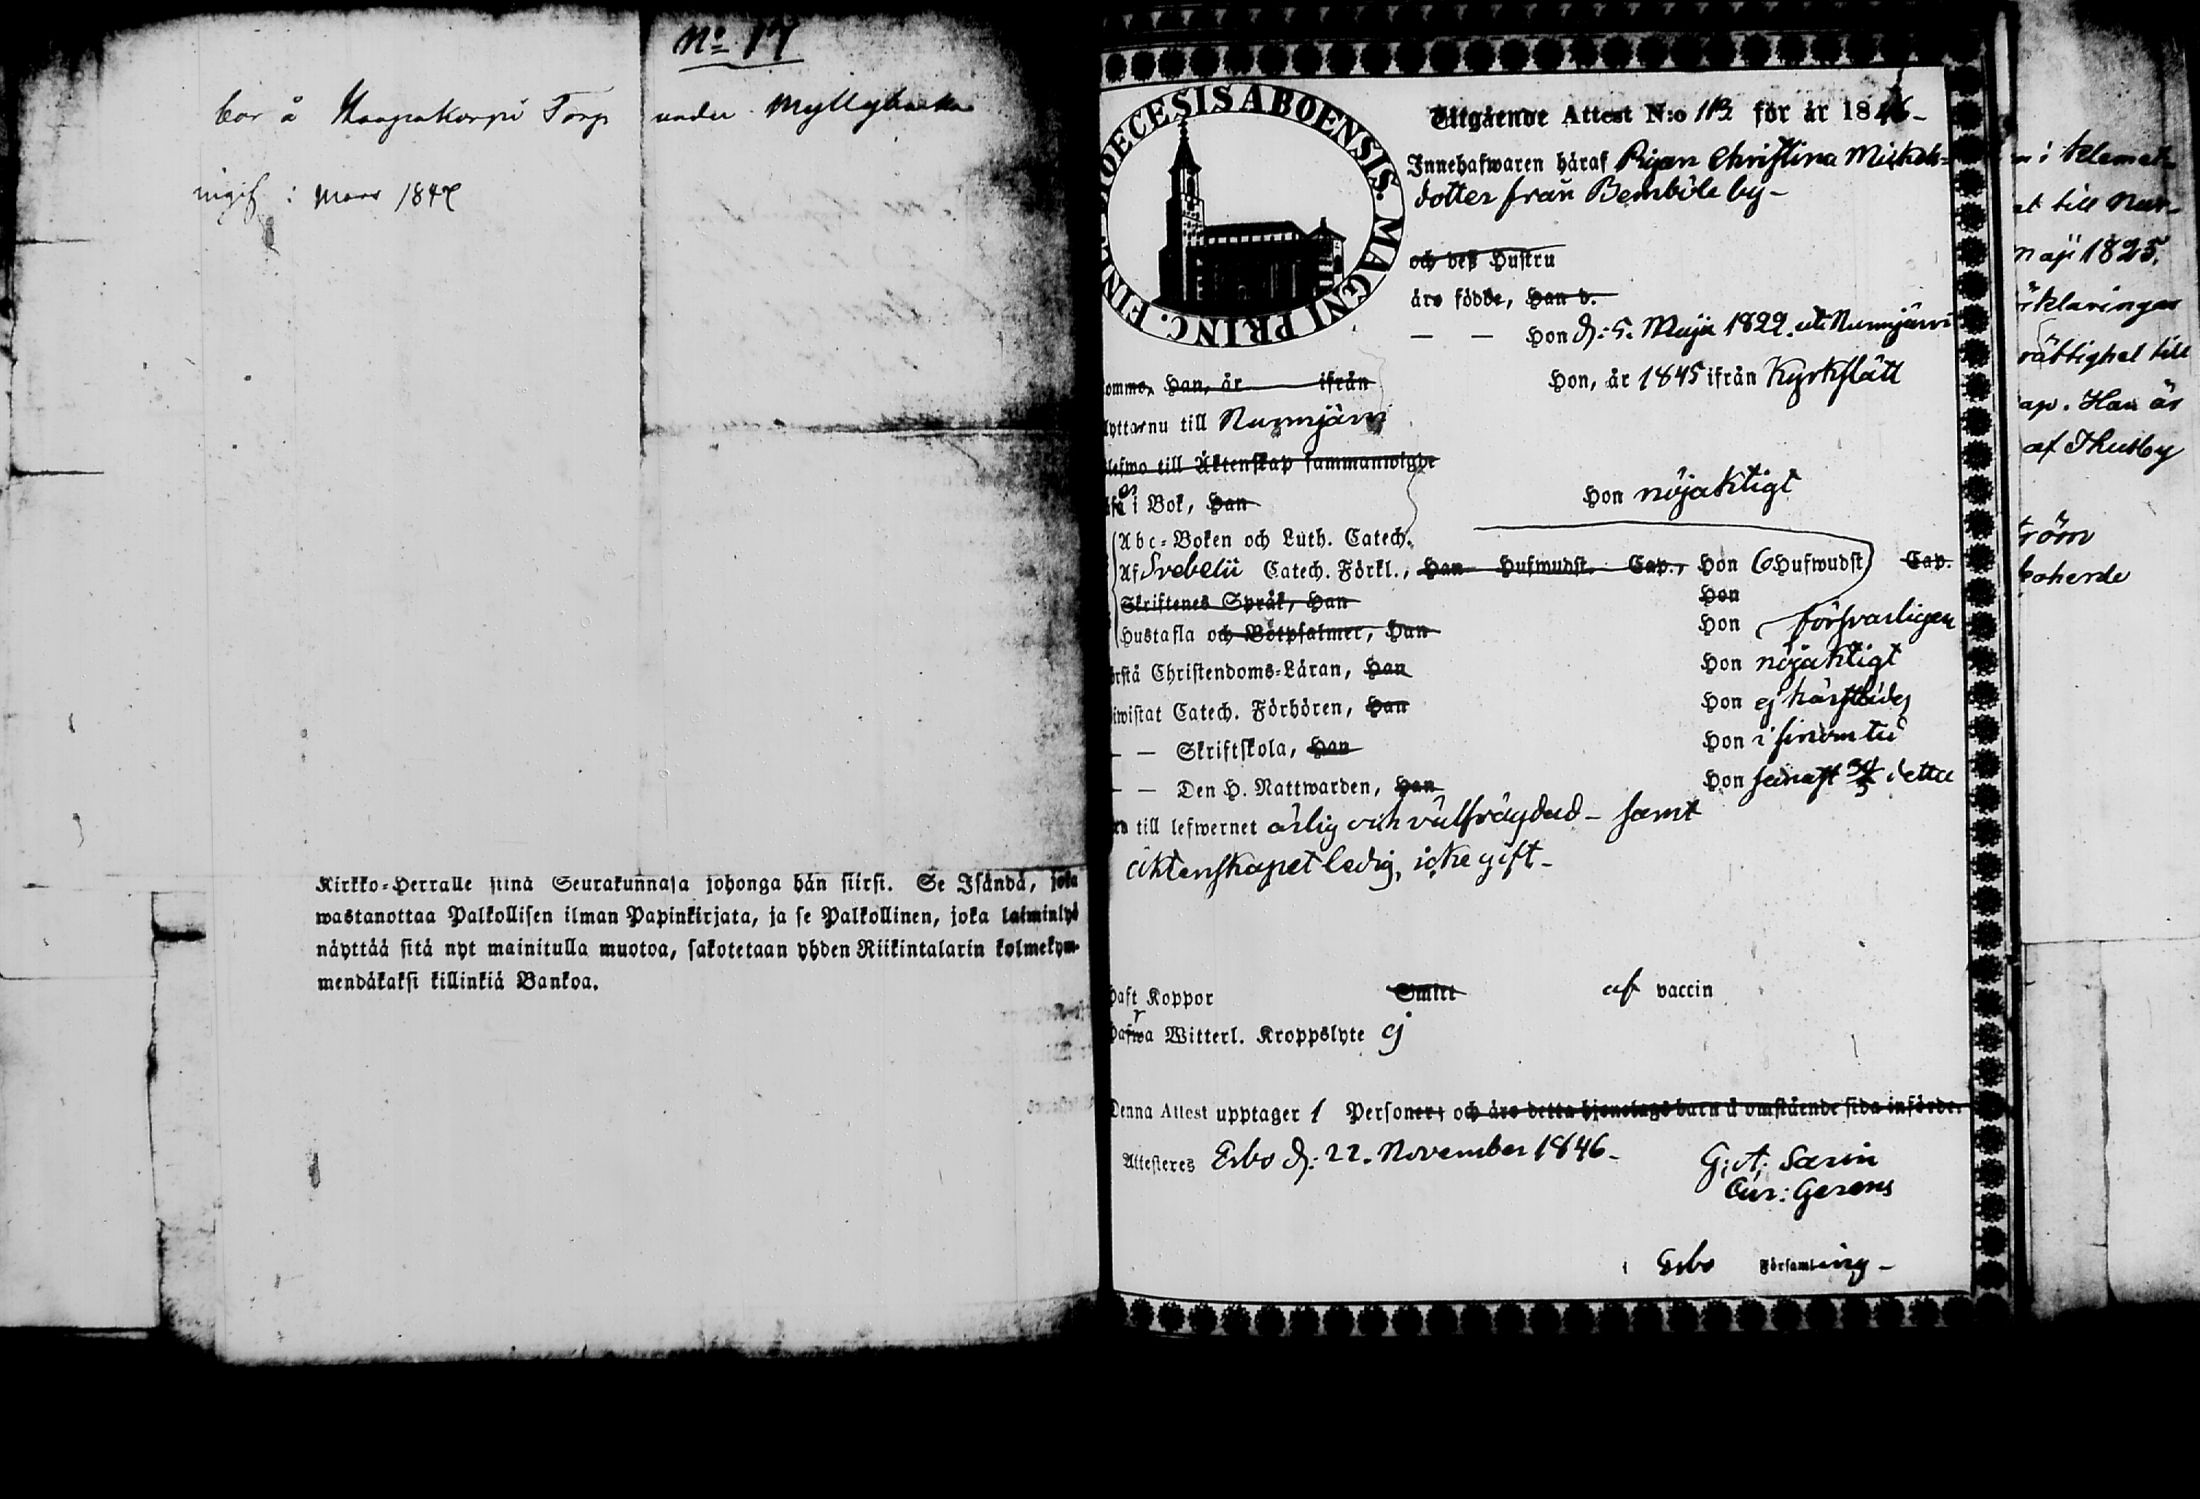 No 17
bor å Haapakorpi Torp under Myllybacka
ingif. i Mars 1847
Kirkko-Herralle siinä Seurakunnasa johonga hän siirsi. Se Isändä, joka
wastanottaa Palkollisen ilman Papinkirjata, ja se Palkollinen, joka laiminlyö
näyttää sitä nyt mainitulla muotoa, sakotetaan yhden Riikintalarin kolmekym-
mendäkaksi killinkiä Bankoa.
DIOECESIS ABOENSIS. MAGNI PRINC. FINL.
Utgående Attest N:o 112 för år 1846-
Innehafwaren häraf Pigan Christina Mickels-
dotter från Bembole by-
och deß Hustru
äro födde, Han d.
— — Hon d: 5. Maji 1822. uti Nurmijärvi
komme, Han, år ifrån Hon, år 1845 ifrån Kyrkslätt
flyttar nu till Nurmijärvi
lefwa till Äktenskap sammanwigde
i Bok, Han Hon nöjaktigt
Abc-Boken och Luth. Catech.
Af Svebelii Catech. Förkl., Han Hufwudst. Cap., Hon 6 Hufwudst Cap.
Skriftenes Språk, Han Hon
Hustafla och Botpsalmer, Han Hon försvarligen
förstå Christendoms-Läran, Han Hon nöjaktigt
biwistat Catech. Förhören, Han Hon ej härstädes
— — Skriftskola, Han Hon i sinom tid
— — Den H. Nattwarden, Han Hon senast detta
till lefwernet ärlig och välfrägdad - samt
äktenskapet ledig, icke gift-
haft Koppor Smitt af vaccin
hafwa Witterl. Kroppslyte ej
Denna Attest upptager 1 Personer, och äro detta hjonelags barn å omstående sida införde.
Attesteres Esbo d: 22. November 1846-
G: A: Sarin
Cur: Gerens
i Esbo Församling-
i Klemet-
till Nur-
maji 1825.
rklaringar
rättighet till
ap. Han är
af Thusby
röm
koherde